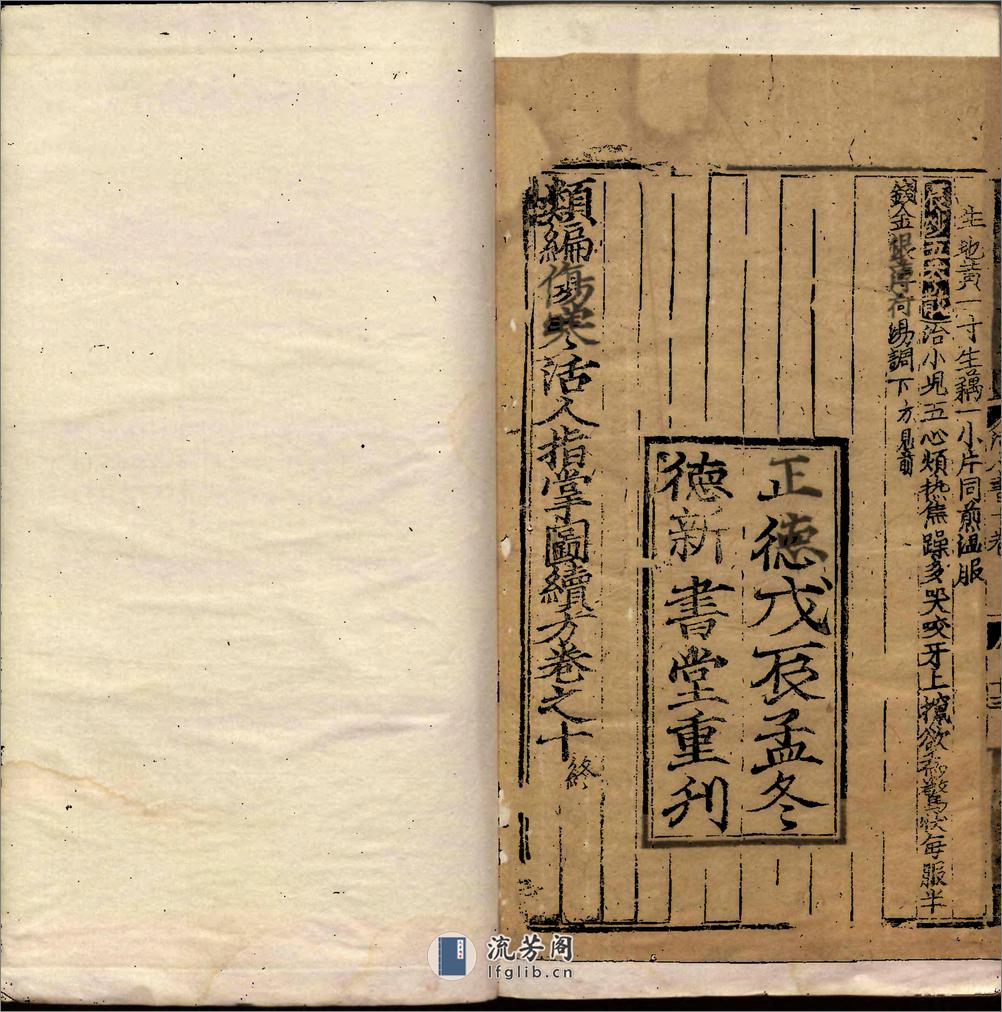 生地黄一寸生藕一小片同煎温服
辰砂五苓散治小児五心煩热焦躁多哭咬牙上攛欲為驚状每服半
錢入金銀薄荷湯調下方見前
正德戊辰孟冬
德新書堂重刋
類編傷寒活人指掌圖續方卷之十終
流芳阁
lfglib.cn